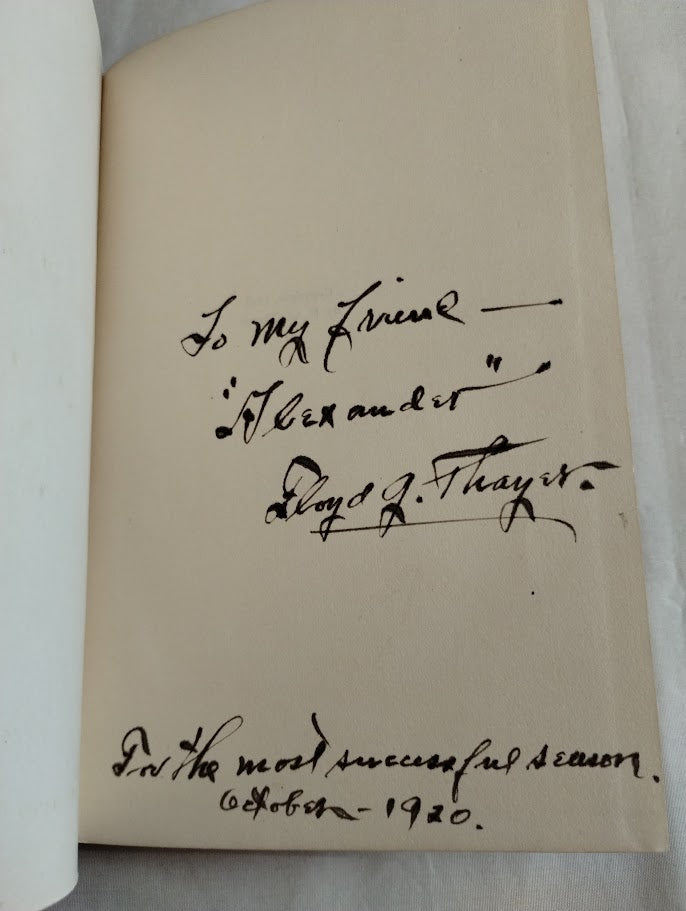 To my friend —
"Alexander"
Floyd G. Thayer.
For the most successful season.
October - 1920.